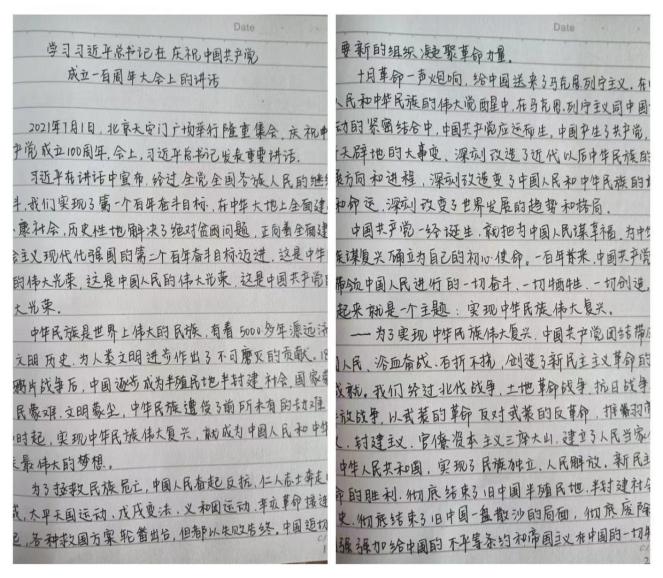 Date
学习习近平总书记在庆祝中国共产党
成立一百周年大会上的讲话
2021年7月1日,北京天安门广场举行隆重集会,庆祝中
产党成立100周年.会上,习近平总书记发表重要讲话.
习近平在讲话中宣布,经过全党全国各族人民的继续
斗,我们实现了第一个百年奋斗目标,在中华大地上全面建
康社会,历史性地解决了绝对贫困问题,正向着全面建
会主义现代化强国的第二个百年奋斗目标迈进,这是中华
的伟大光荣,这是中国人民的伟大光荣,这是中国共产党
大光荣。
中华民族是世界上伟大的民族,有着5000多年源远流
文明历史,为人类文明进步作出了不可磨灭的贡献。18
鸦片战争后,中国逐步成为半殖民地半封建社会,国家蒙
民蒙难.文明蒙尘,中华民族遭受了前所未有的劫难
时起,实现中华民族伟大复兴,就成为中国人民和中华
最伟大的梦想。
为了拯救民族危亡,中国人民奋起反抗,仁人志士奔走
太平天国运动、戊戌变法、义和团运动、辛亥革命接连
起,各种救国方案轮番出台,但都以失败告终,中国迫切
Date
要新的组织凝聚革命力量.
十月革命一声炮响,给中国送来了马克思列宁主义,在
人民和中华民族的伟大觉醒中,在马克思.列宁主义同中国
动的紧密结合中,中国共产党应运而生,中国产生了共产党,
天辟地的大事变,深刻改造了近代以后中华民族的
展方向和进程,深刻改造变了中国人民和中华民族的
和命运,深刻改变了世界发展的趋势和格局.
中国共产党一经诞生,就把为中国人民谋幸福,为中华
族谋复兴确立为自己的初心使命。一百年并来,中国共产党
带领中国人民进行的一切奋斗、一切牺牲、一切创造,
起来就是一个主题:实现中华民族伟大复兴。
——为了实现中华民族伟大复兴,中国共产党团结带
国人民,浴血奋战、百折不挠,创造了新民主主义革命的
成就,我们经过北伐战争、土地革命战争、抗日战争
放战争,以武装的革命反对武装的反革命,推翻
、封建主义、官僚资本主义三座大山,建立了人民当家
中华人民共和国,实现了民族独立、人民解放,新民主
命的胜利.彻底结束了旧中国半殖民地.半封建社会
史,彻底结束了旧中国一盘散沙的局面,彻底废除
强强加给中国的不平等条约和帝国主义在中国的一切